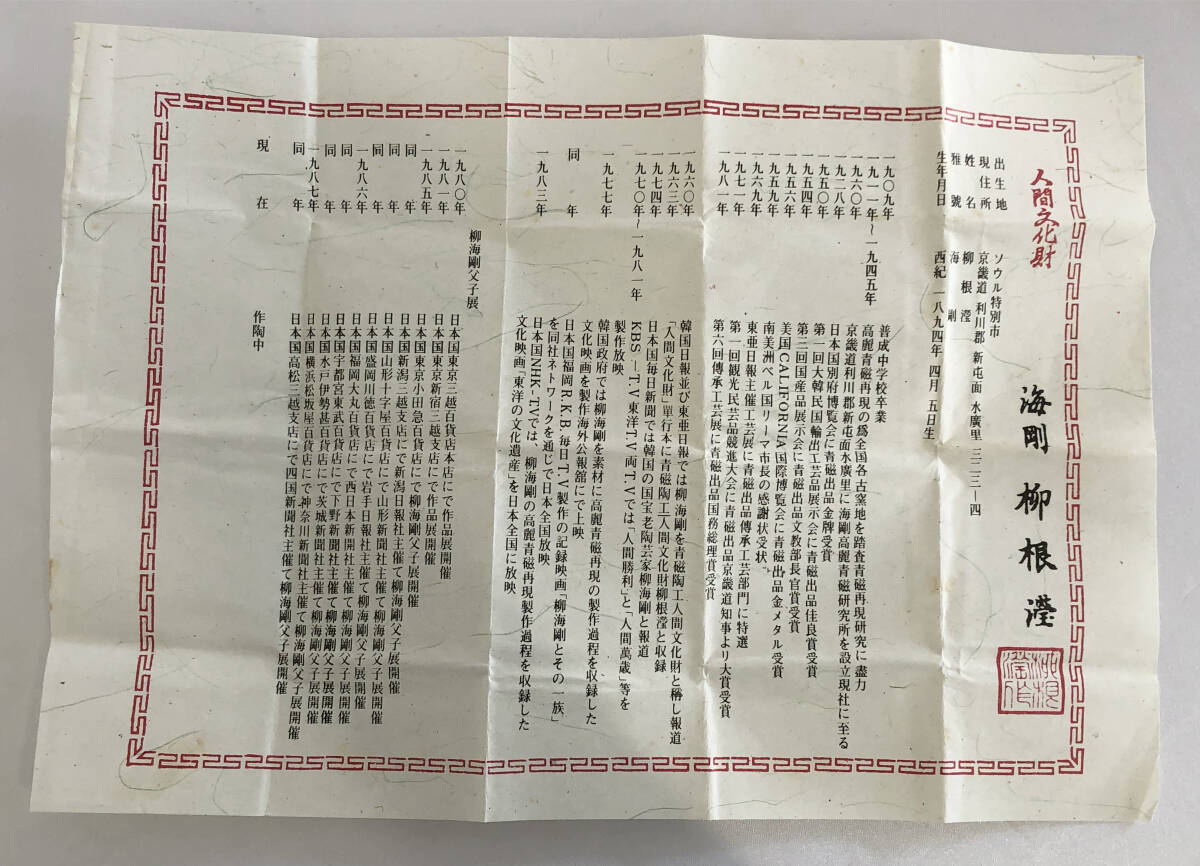 人間文化財
海剛 柳根瀅
出生地 ソウル特別市
現住所 京畿道 利川郡 新屯面 水廣里 三二三ー四
姓名 柳根瀅
雅號 海剛
生年月日 西紀 一八九四年 四月 五日生
一九〇九年 普成中学校卒業
一九一一年～一九四五年 高麗青磁再現の爲全国各古窯地を踏査青磁再現研究に盡力
一九六〇年 京畿道利川郡新屯面水廣里に海剛高麗青磁研究所を設立現社に至る
一九二八年 日本国別府博覧会に青磁出品金牌受賞
一九五〇年 第一回大韓民国輸出工芸品展示会に青磁出品佳良賞受賞
一九五四年 第三回国産品展示会に青磁出品文教部長官賞受賞
一九五六年 美国CALIFORNIA国際博覧会に青磁出品金メタル受賞
一九五九年 南美洲ペル国リーマ市長の感謝状受状
一九六九年 東亜日報主催工芸展に青磁出品傳承工芸部門に特選
一九七一年 第一回観光民芸品競進大会に青磁出品京畿道知事より大賞受賞
一九八一年 第六回傳承工芸展に青磁出品国務総理賞受賞
一九六〇年 韓国日報並び東亜日報では柳海剛を青磁陶工人間文化財と稱し報道
一九六三年 「人間文化財」単行本に青磁陶工人間文化財柳根瀅と収録
一九七四年 日本国毎日新聞では韓国の国宝老陶芸家柳海剛と報道
一九七〇年～一九八一年 KBSーT.V東洋T.V両T.Vでは「人間勝利」と「人間萬歳」等を
製作放映
一九七七年 韓国政府では柳海剛を素材に高麗青磁再現の製作過程を収録した
文化映画を製作海外公報舘にて上映
同年 日本国福岡R.K.B.毎日T.V製作の記録映画「柳海剛とその一族」
を同社ネトワークを通じで日本全国放映
一九八三年 日本国NHK-TVでは、柳海剛の高麗青磁再現製作過程を収録した
文化映画「東洋の文化遺産」を日本全国に放映
柳海剛父子展
一九八〇年 日本国東京三越百貨店本店にで作品展開催
一九八一年 日本国東京新宿三越支店にで作品展開催
一九八五年 日本国東京小田急百貨店にで柳海剛父子展開催
同年 日本国新潟三越支店にで新潟日報社主催て柳海剛父子展開催
同年 日本国山形十字屋百貨店にで山形新聞社主催て柳海剛父子展開催
一九八六年 日本国盛岡川徳百貨店にで岩手日報社主催て柳海剛父子展開催
同年 日本国福岡大丸百貨店にで西日本新聞社主催て柳海剛父子展開催
同年 日本国宇都宮東武百貨店にで下野新聞社主催て柳海剛父子展開催
同年 日本国水戸伊勢甚百貨店にで茨城新聞社主催て柳海剛父子展開催
一九八七年 日本国横浜松坂屋百貨店にで神奈川新聞社主催て柳海剛父子展開催
同年 日本国高松三越支店にで四国新聞社主催て柳海剛父子展開催
現在 作陶中